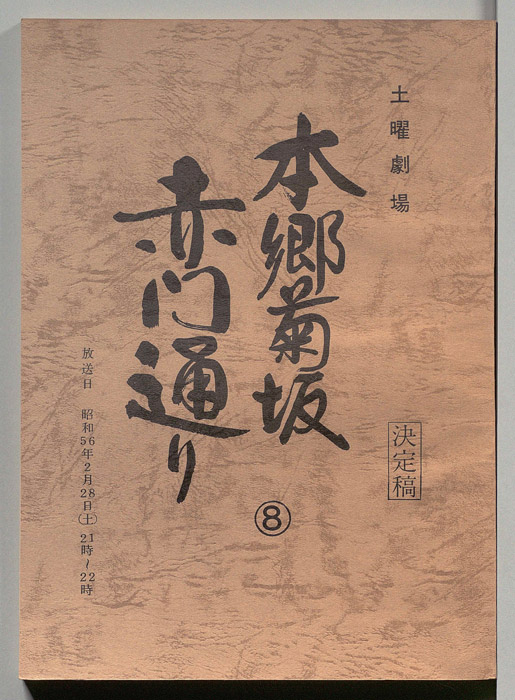 土曜劇場
決定稿
本郷菊坂
赤门通り
⑧
放送日 昭和56年2月28日(土) 21時~22時